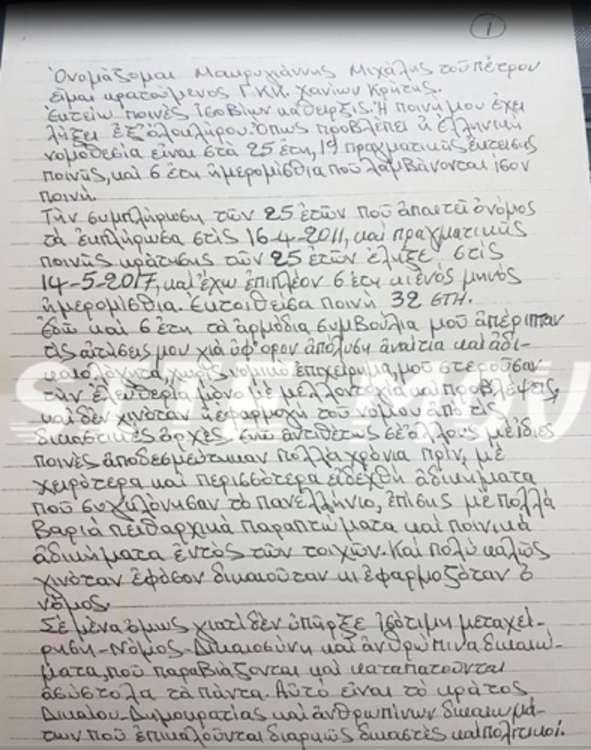 1
Ὀνομάζομαι Μαυρυγιάννης Μιχάλης τοῦ πέτρου
εἶμαι κρατούμενος Γ.Κ.Κ. Χανίων Κρήτης.
Ἐκτείω ποινὲς ἰσοβίων κάθειρξις. Ἡ ποινή μου ἔχει
λήξει ἐξ' ὁλοκλήρου. Ὅπως προβλέπει ἡ ἑλληνική
νομοθεσία εἶναι στὰ 25 ἔτη, 19 πραγματικῆς ἔκτεισης
ποινῆς, καὶ 6 ἔτη ἡμερομίσθια ποὺ λαμβάνονται ἴσον
ποινή.
Τὴν συμπλήρωση τῶν 25 ἐτῶν ποῦ ἀπαιτεῖ ὁ νόμος
τὰ ἐκπλήρωσα στὶς 16-4-2011, καὶ πραγματικῆς
ποινῆς κράτησης τῶν 25 ἐτῶν ἔληξε, στὶς
14-5-2017, καὶ ἔχω ἐπιπλέον 6 ἔτη κι ἑνὸς μηνὸς
ἡμερομίσθια. Ἐκτοιθεῖσα ποινή 32 ΕΤΗ.
ἐδῶ καὶ 6 ἔτη τὰ ἁρμόδια συμβούλια μοῦ ἀπέριπταν
τὶς αἰτήσεις μου γιὰ ὑφ' ὅρον ἀπόλυση ἀναίτια καὶ ἀδι-
καιολόγητα, χωρὶς νομικό ἐπιχείρημα, μοῦ στεροῦσαν
τὴν ἐλευθερία μόνο μὲ μελλοντολογία καὶ προβλέψεις,
καὶ δὲν γινόταν ἡ ἐφαρμογὴ τοῦ νόμου ἀπὸ τὶς
δικαστικὲς ἀρχὲς, ἐνῶ ἀντιθέτως σὲ ἄλλους μὲ ἴδιες
ποινὲς ἀποδεσμεύτηκαν πολλὰ χρόνια πρίν, μὲ
χειρότερα καὶ περισσότερα εἰδεχθῆ ἀδικήματα
ποῦ συγκλόνησαν τὸ πανελλήνιο, ἐπίσης μὲ πολλά
βαριὰ πειθαρχικά παραπτώματα καὶ ποινικά
ἀδικήματα ἐντὸς τῶν τοιχῶν. Καὶ πολύ καλῶς
γινόταν ἐφόσον δικαιοῦταν κι ἐφαρμοζόταν ὁ
νόμος.
Σὲ μένα ὅμως γιατί δὲν ὑπῆρξε ἰσότιμη μεταχεί-
ρηση-Νόμος-Δικαιοσύνη καὶ ἀνθρώπινα δικαιώ-
ματα, ποῦ παραβιάζονται καὶ καταπατοῦνται
ἀσύστολα τὰ πάντα. Αὐτὸ εἶναι τὸ κράτος
Δικαίου-Δημοκρατίας καὶ ἀνθρωπίνων δικαιωμά-
των ποῦ ἐπικαλοῦνται διαρκῶς δικαστὲς καὶ πολιτικοί.